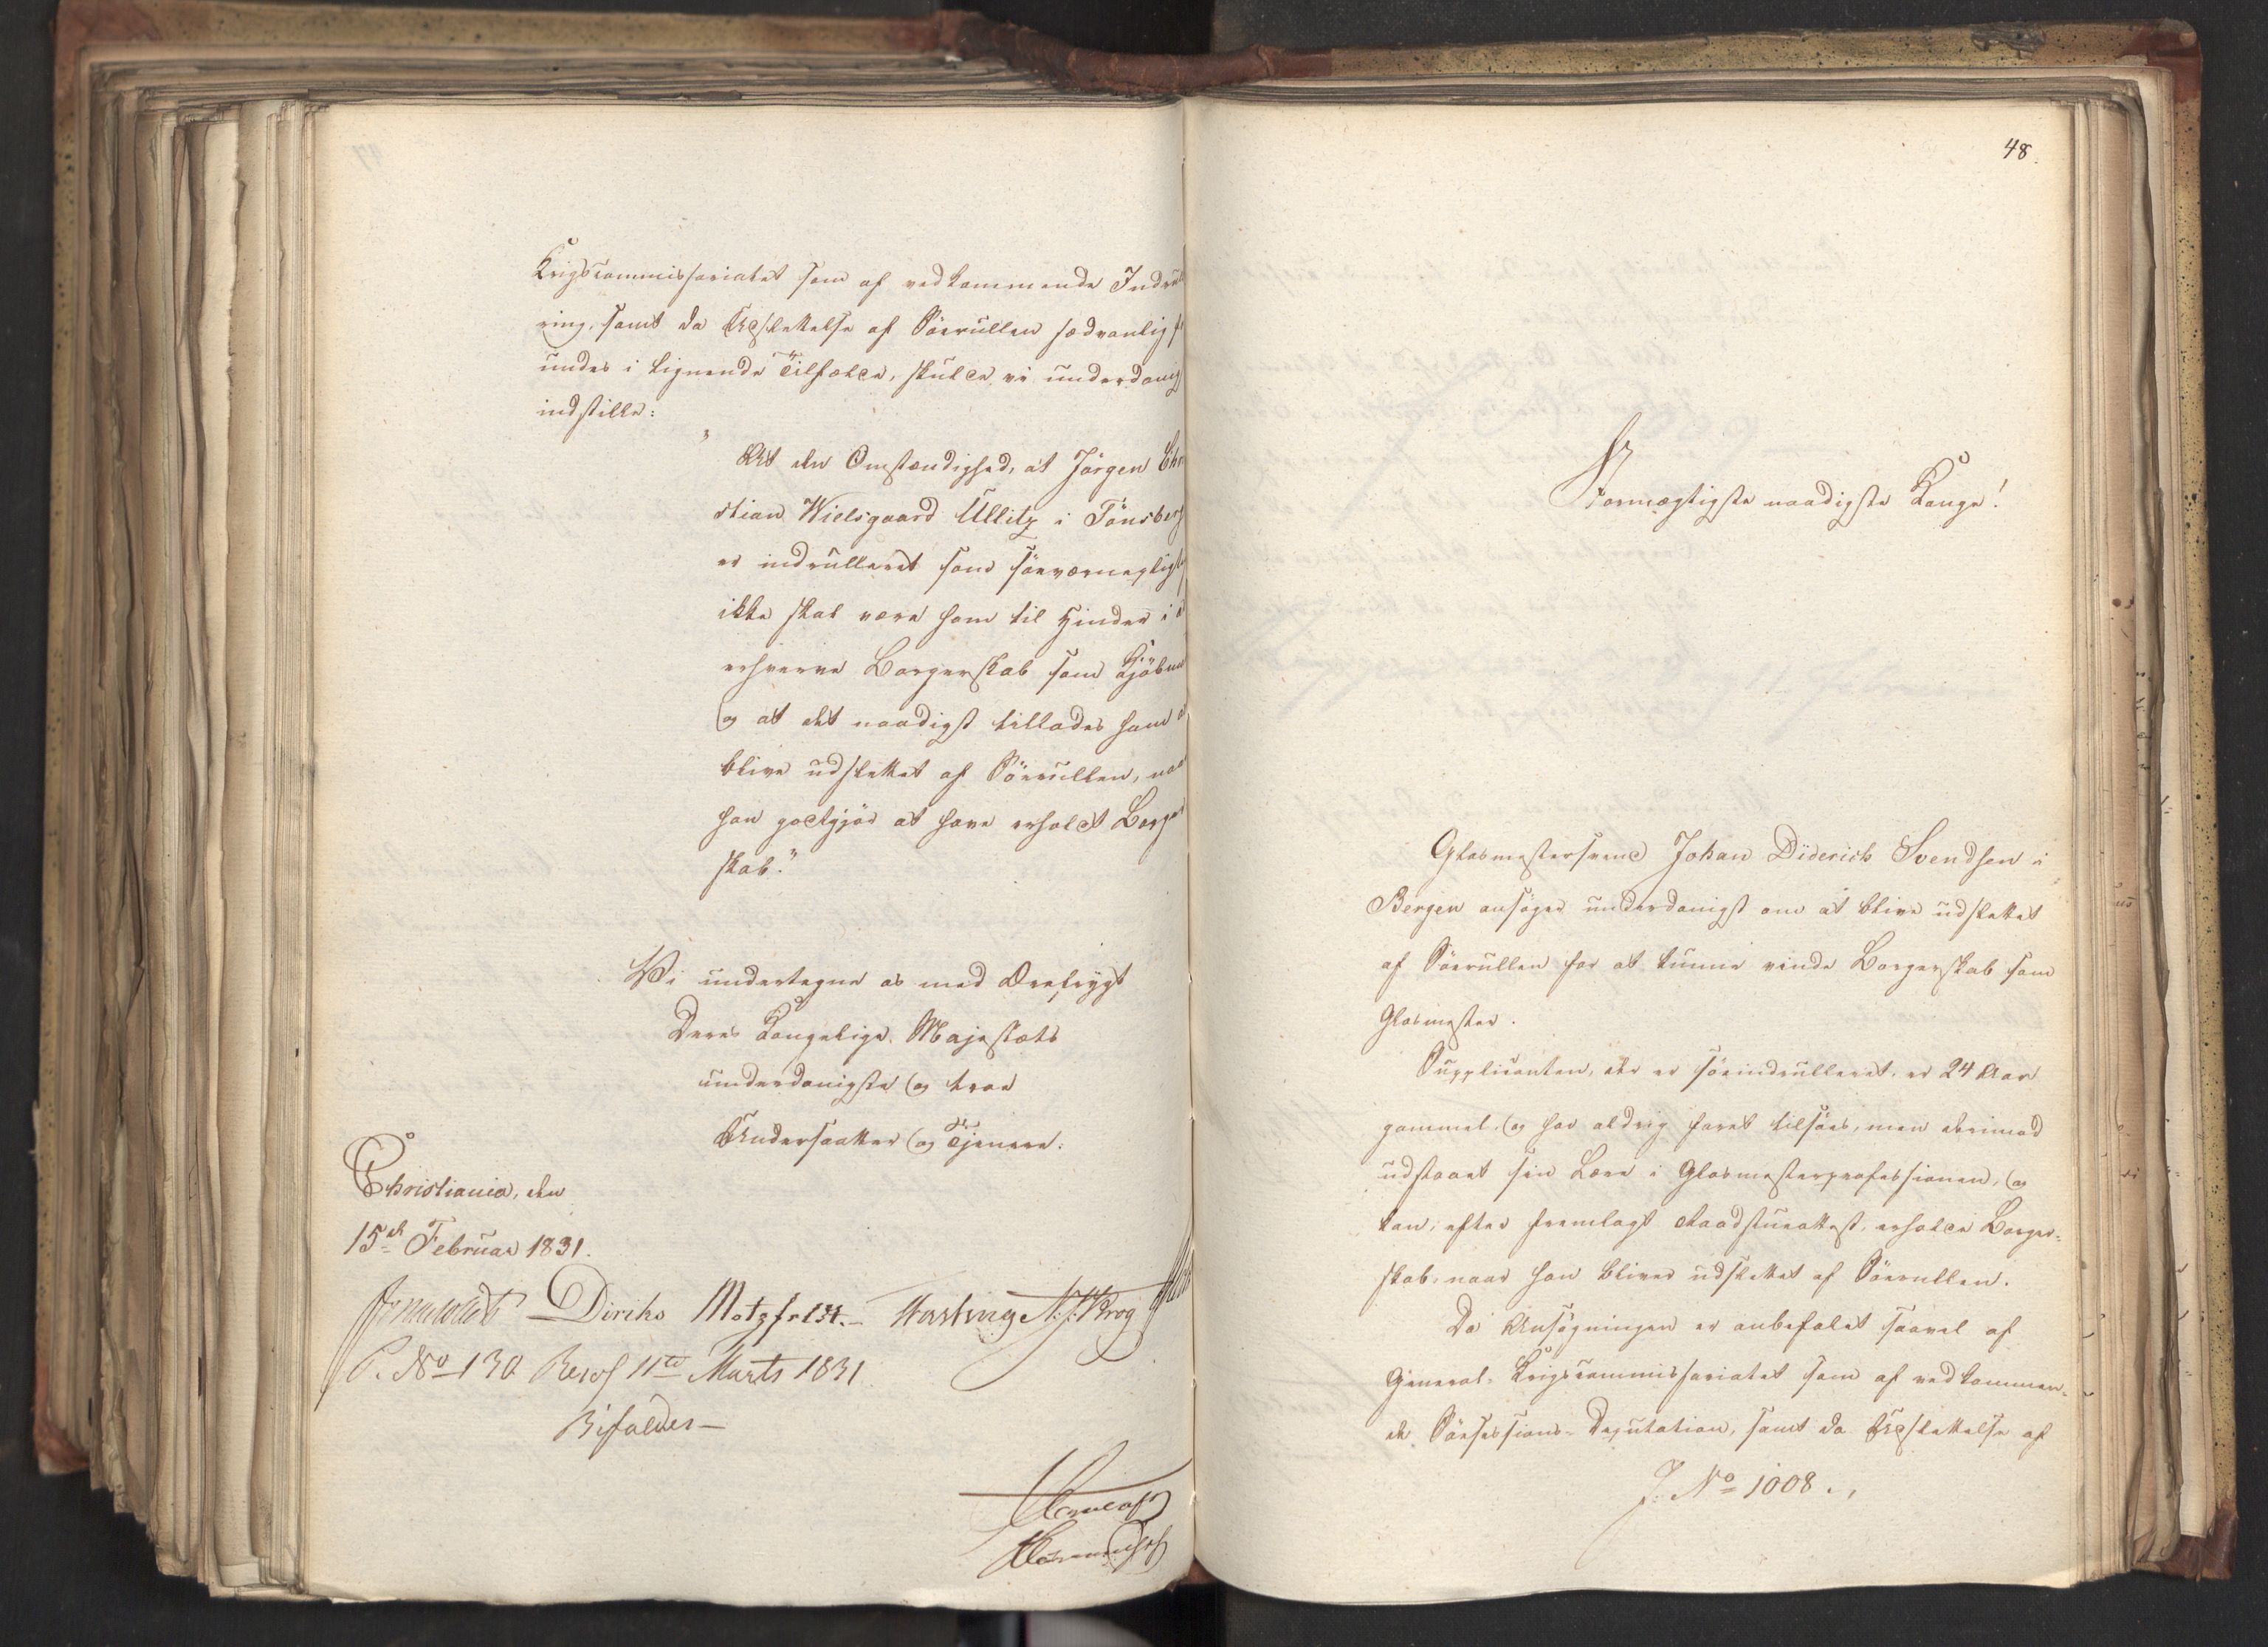 Krigscommissariatet som af vedkommende Indrul
ring, samt da Udslettelse af Söerullen sædvanlig
undes i lignende Tilfælde, skulde vi underdanig
indstille:
"At den Omstændighed, at Jörgen Chri
stian Wielsgaard Ullitz i Tönsberg
er indrulleret som söeværnepligtig
ikke skal være ham til Hinder i
erhverve Borgerskab som Kjöbm
og at det naadigst tillades ham
blive udslettet af Söerullen, naa
han godtgjör at have erholdt Borger
skab."
Vi undertegne os med Ærefrygt
Deres Kongelige Majestæts
underdanigste og troe
Undersaatter og Tjenere:
Christiania, den
15de Februar 1831.
Diriks Motzfeldt. Hasting N. J. Krog
P. No 130 Resol 11te Marts 1831
Bifaldes
48.
Stormægtigste naadigste Konge!
Glasmestersvend Johan Diderich Svendsen i
Bergen ansöger underdanigst om at blive udslettet
af Söerullen for at kunne vinde Borgerskab som
Glasmester.
Supplicanten, der er söeindrulleret, er 24 Aar
gammel, og har aldrig faret tilsöes, men derimod
udstaaet sin Lære i Glasmesterprofessionen, og
kan, efter fremlagt Raadstueattest, erholde Borger-
skab, naar han bliver udslettet af Söerullen.
Da Ansögningen er anbefalet saavel af
General-Krigscommissariatet som af vedkommen-
de Söesessions-Deputation, samt da Udslettelse af
J. No 1008.